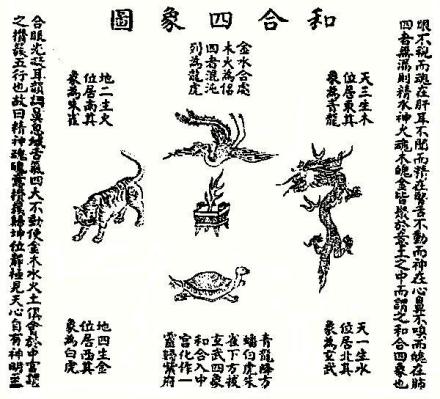 和合四象圖
眼不視而魂在肝耳不聞而精在腎舌不動而神在心鼻不嗅而魄在肺
四者無漏則精水神火魂木魄金皆聚於意土之中而謂之和合四象也
天三生木
位居東其
象為青龍
金水合處
木火為侶
四者混沌
列為龍虎
地二生火
位居南其
象為朱雀
天一生水
位居北其
象為玄武
青龍降方
蟠白虎朱
雀下方按
玄武四象
和合入中
宮化作一
靈歸紫府
地四生金
位居西其
象為白虎
合眼光凝耳韻調鼻息緘舌氣四大不動使金木水火土俱會於中宮謂
之攢簇五行也故曰精神魂魄意攢簇歸坤位靜極見天心自有神明至